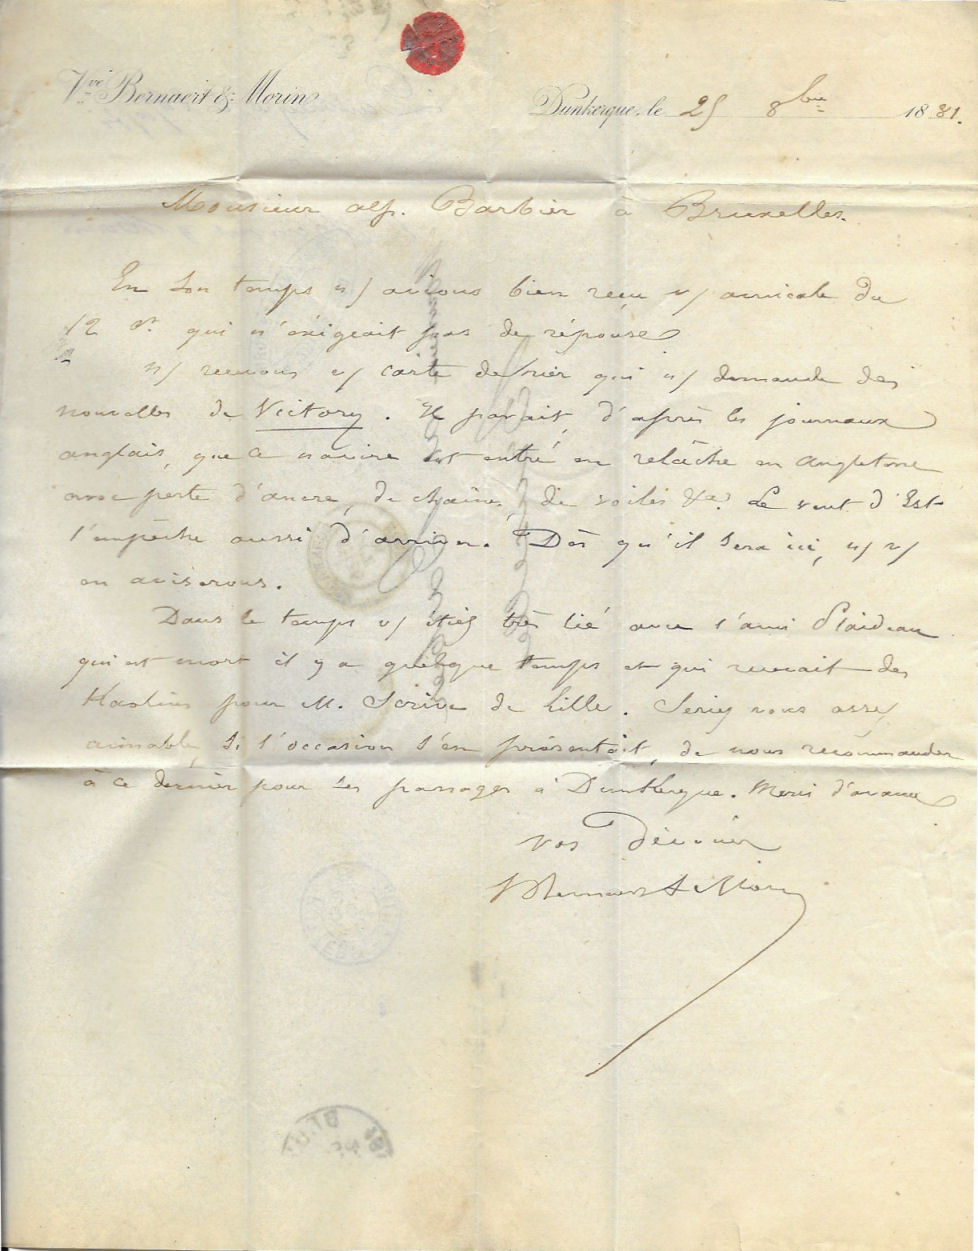 Vve Bernaert & Morin
Dunkerque, le 25 8bre 1881.
Monsieur alf. Barbier à Bruxelles.
En son temps n/ avions bien reçu v/ amicale du
12 ct qui n'éxigeait pas de réponse
n/ recevons v/ carte d'hier qui n/ demande des
nouvelles de Victory. Il parait, d'après les journaux
anglais, que ce navire est entré en relâche en Angleterre
avec perte d'ancre, de chaînes, de voiles &a. Le vent d'Est
l'empêche aussi d'arriver. Dès qu'il sera ici, n/ v/
en aviserons.
Dans le temps v/ étiez très lié avec l'ami Plaideau
qui est mort il y a quelque temps et qui recevait des
pour M. Scrive de Lille. Seriez vous assez
aimable, si l'occasion s'en présentait, de nous recommander
à ce dernier pour ses passages à Dunkerque. Merci d'avance
vos dévoués
Vve Bernaert & Morin